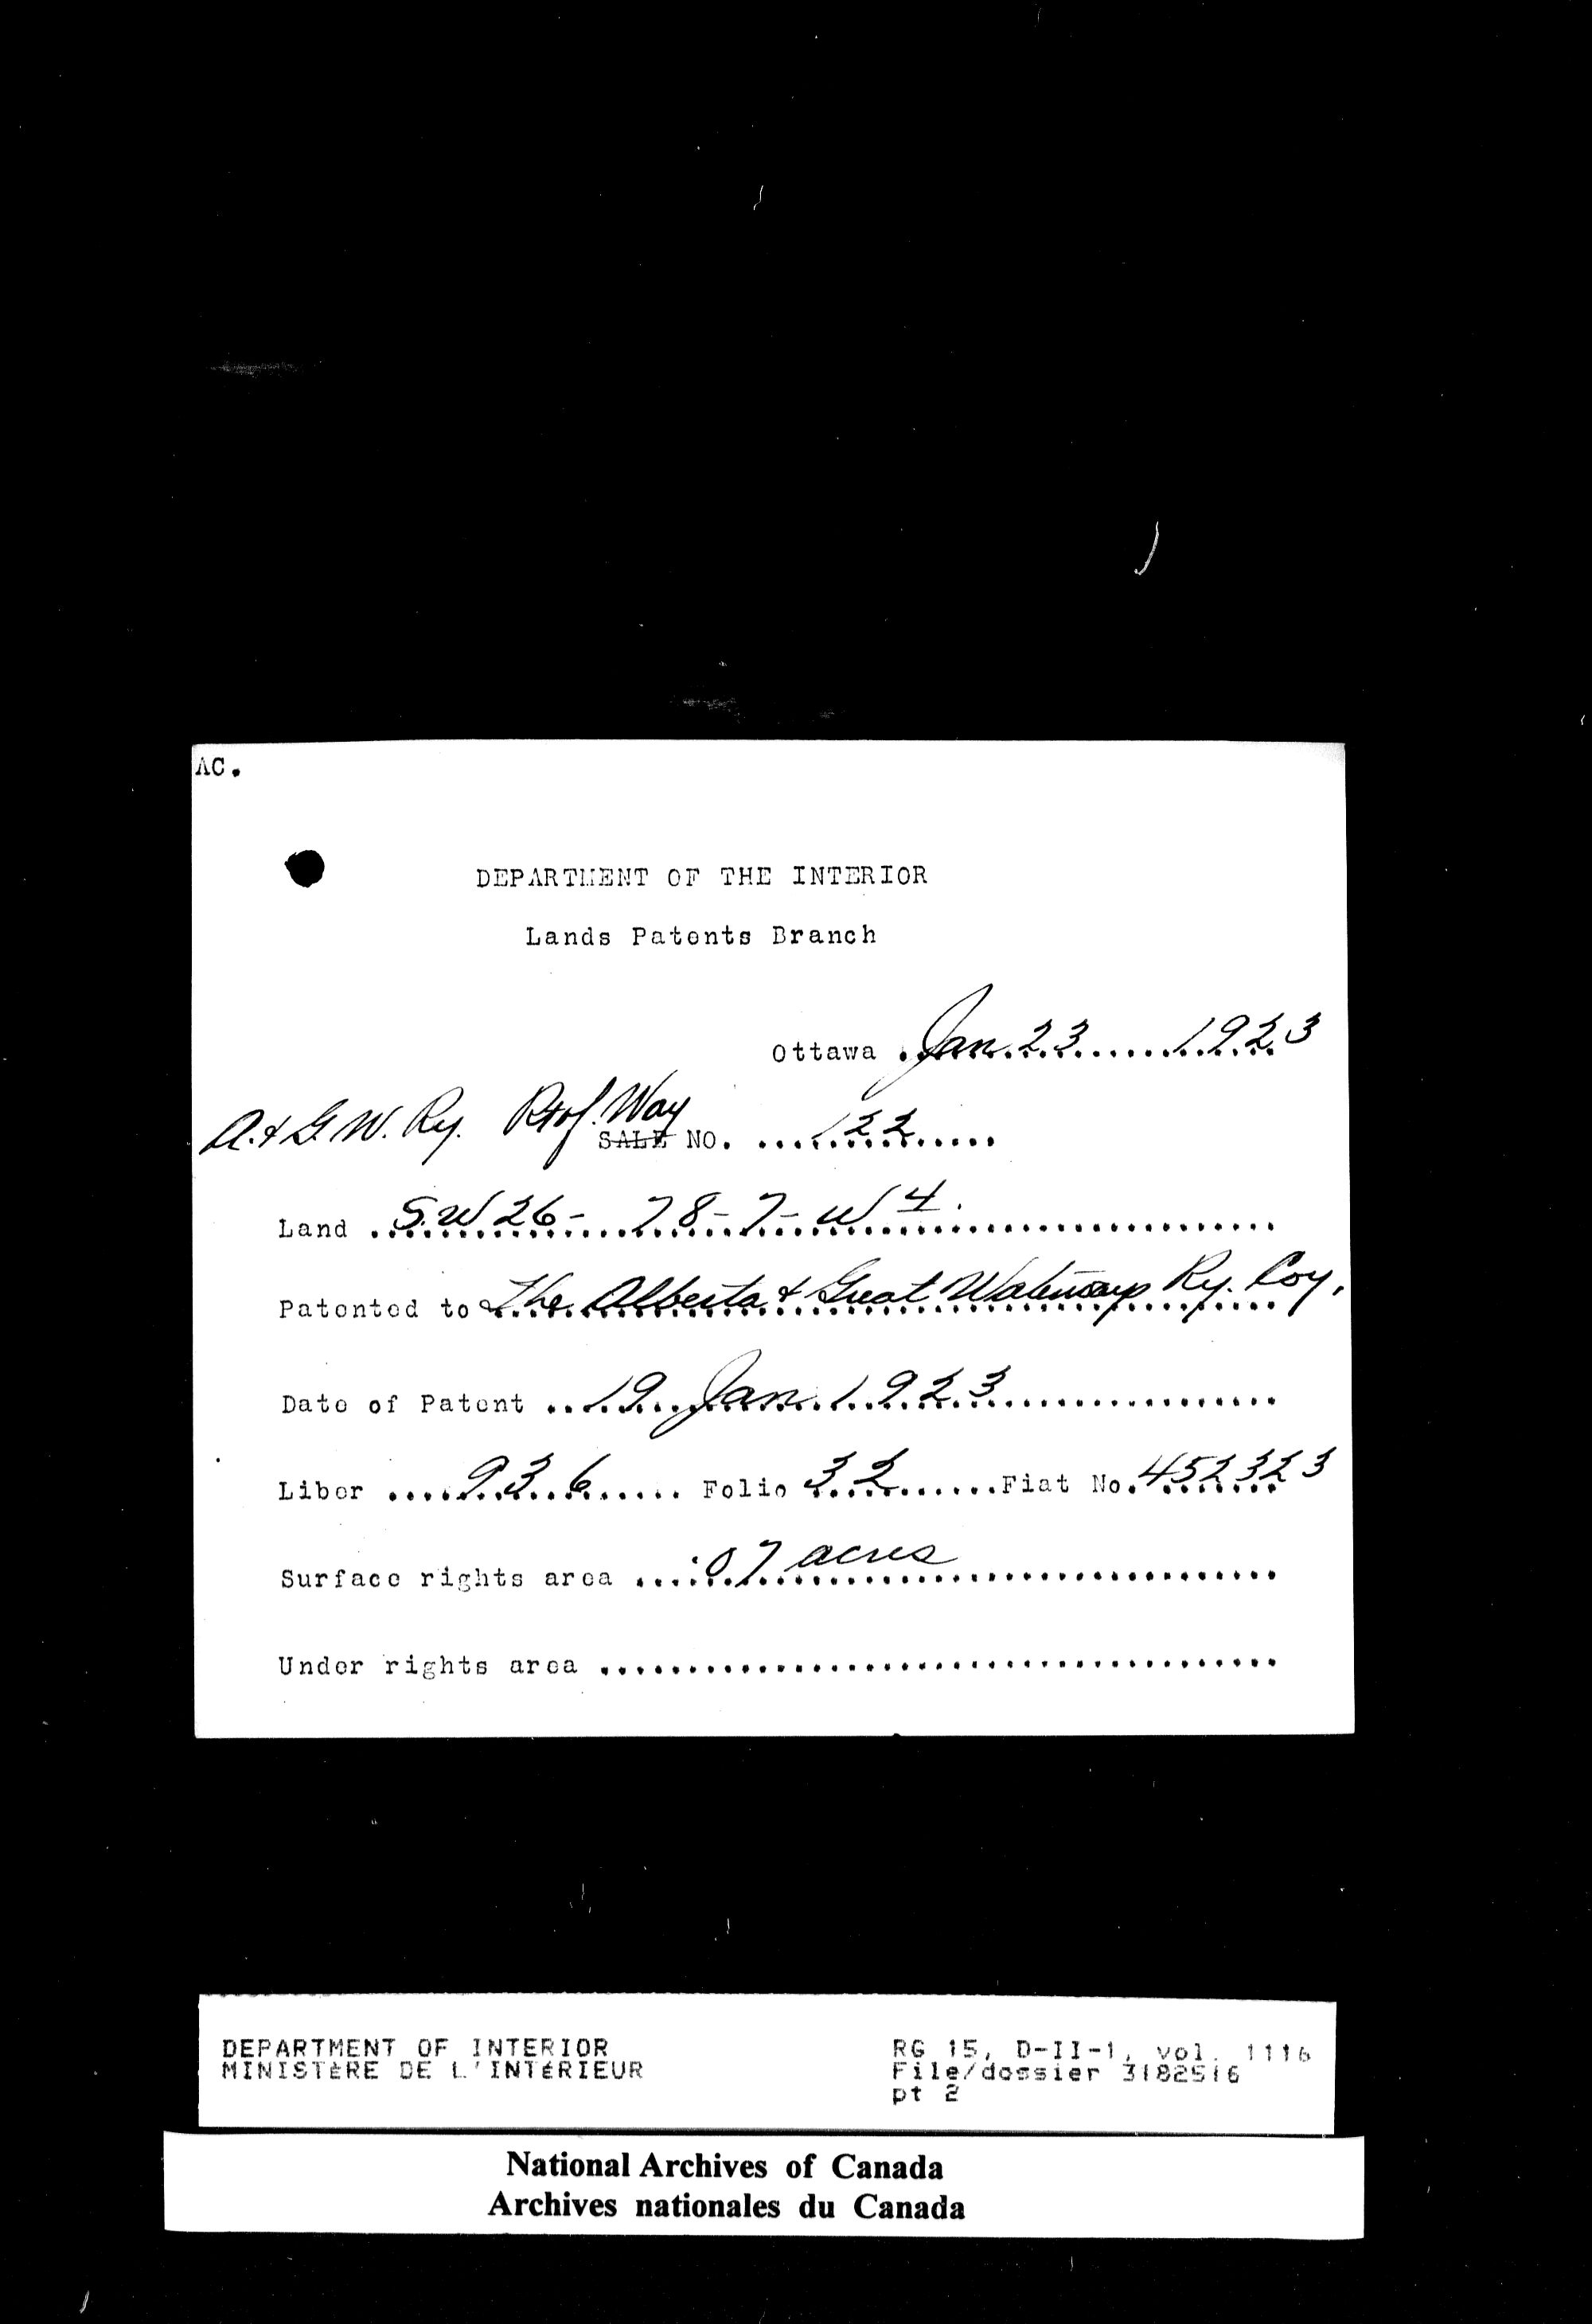 AC.
DEPARTMENT OF THE INTERIOR
Lands Patents Branch
Ottawa .Jan.23......1923
A. & G. W. Ry. Rt of. Way
SALE NO. ....122.....
Land .S.W 26-...78-7-W 4.
Patented to The Alberta & Great Waterways Ry. Coy.
Date of Patent ...19 Jan. 1923
Liber ....936...... Folio 32.......Fiat No.452323
Surface rights area ....07 acres
Under rights area ......................................
DEPARTMENT OF INTERIOR
MINISTÈRE DE L'INTÉRIEUR
RG 15, D-II-1, vol. 1116
File/dossier 3182516
pt 2
National Archives of Canada
Archives nationales du Canada